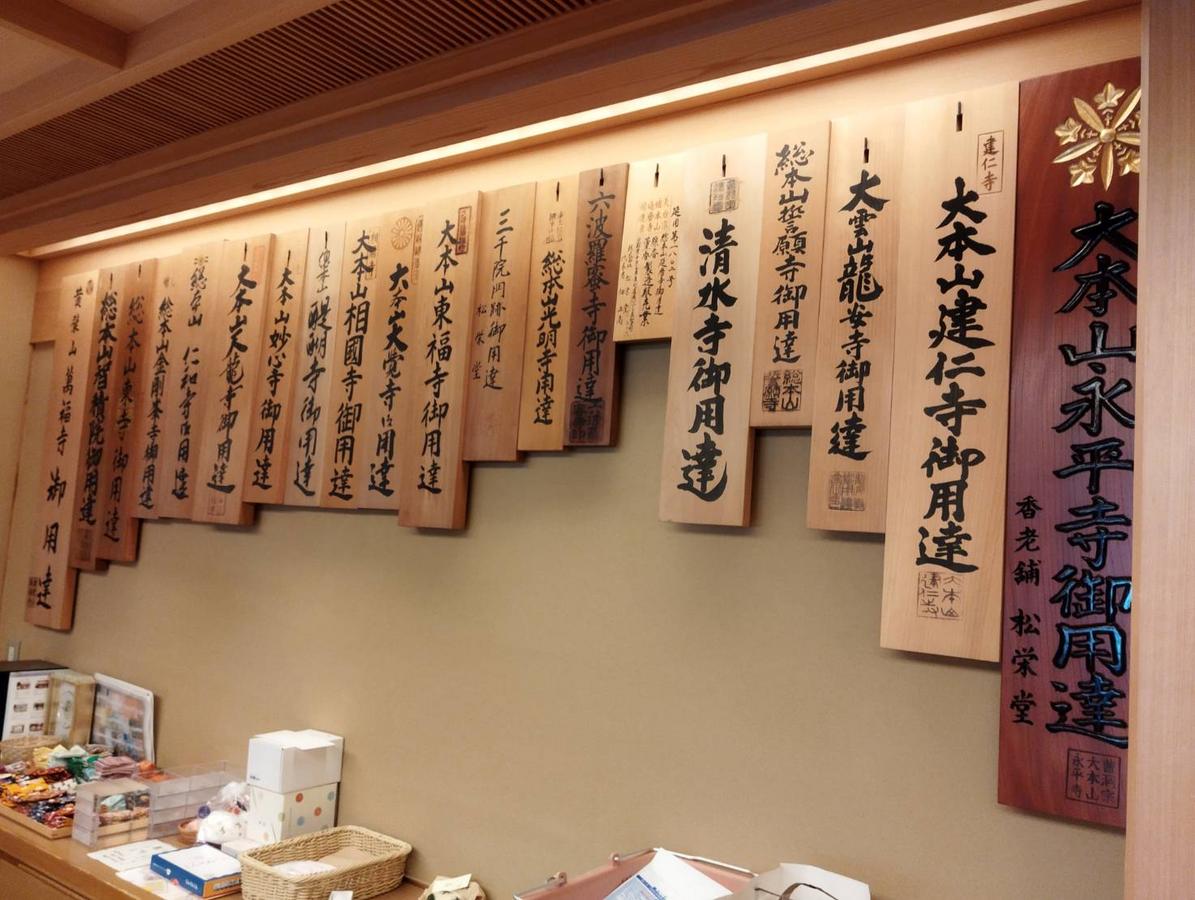 大本山永平寺御用達
香老舗 松栄堂
曹洞宗
大本山
永平寺
建仁寺
大本山建仁寺御用達
大本山
建仁寺
大雲山龍安寺御用達
総本山誓願寺御用達
総本山
誓願寺
清水寺御用達
六波羅蜜寺御用達
総本山光明寺御用達
三千院門跡御用達
松栄堂
大本山東福寺御用達
大本山大覚寺御用達
大本山相國寺御用達
総本山醍醐寺御用達
大本山妙心寺御用達
大本山天龍寺御用達
総本山仁和寺御用達
総本山金剛峯寺御用達
総本山東寺御用達
総本山智積院御用達
黄檗山萬福寺御用達